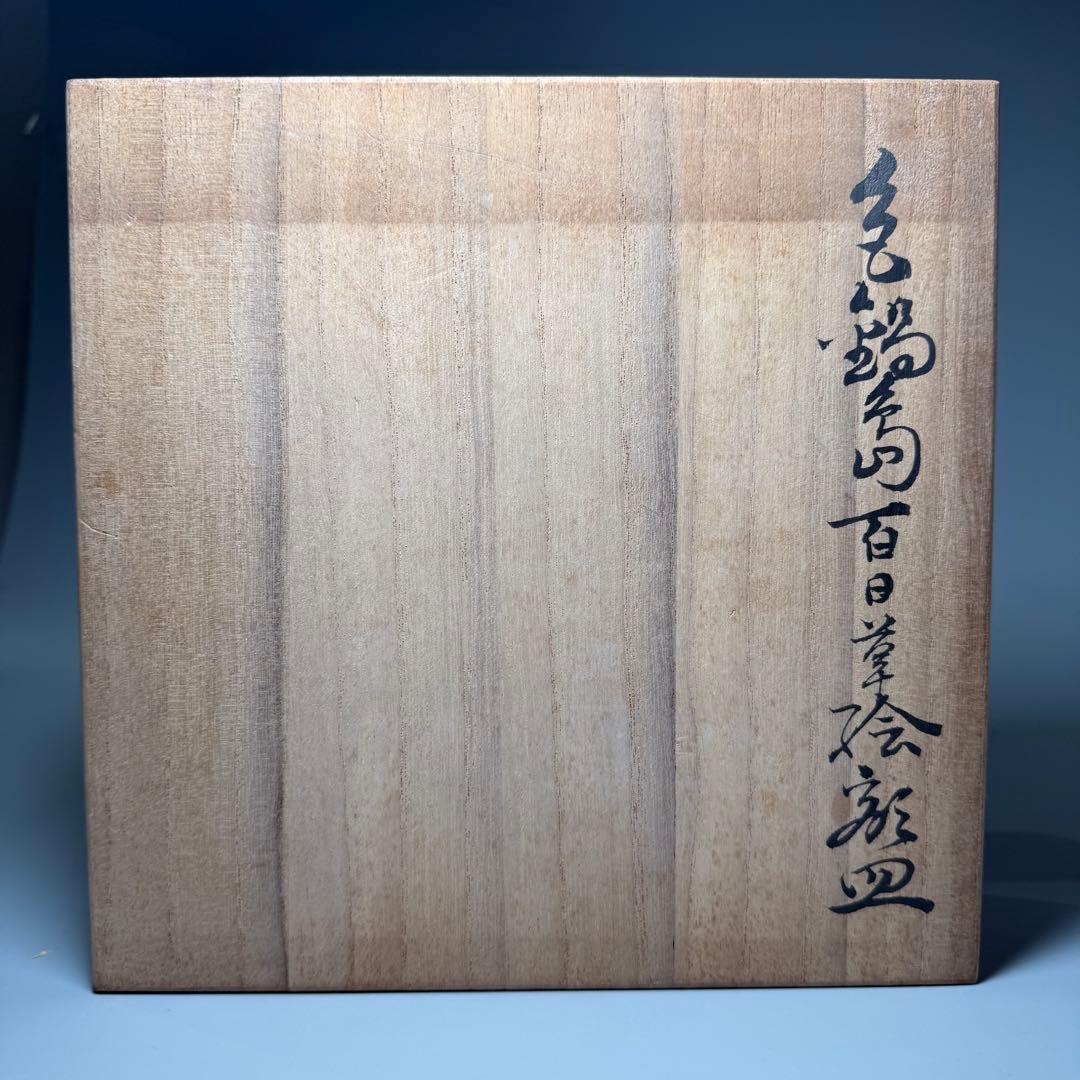 色鍋島百日草絵額皿